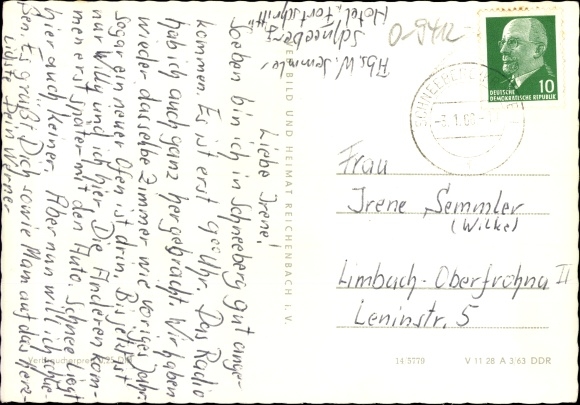 Abs. W. Semmler,
Schneeberg
Hotel "Fortschritt"
Liebe Irene!
Soeben bin ich in Schneeberg gut ange-
kommen. Es ist erst Uhr. Das Radio
hab ich auch ganz hergebracht. Wir haben
wieder dasselbe Zimmer wie voriges Jahr.
Sogar ein neuer Ofen ist drin. Bis jetzt ist
nur Willy und ich hier. Die Anderen kom-
men erst später mit den Auto. Schnee liegt
hier auch keiner. Aber nun will ich schlie-
ßen. Es grüßt Dich sowie Mam auf das herz-
lichste Dein Werner
BILD UND HEIMAT REICHENBACH I. V.
0-9412
DEUTSCHE
DEMOKRATISCHE REPUBLIK
10
SCHNEEBERG
Frau
Irene Semmler
(Wilke)
Limbach-Oberfrohna II
Leninstr. 5
Verbraucherpreis 0,25 DM
14/5779
V 11 28 A 3/63 DDR